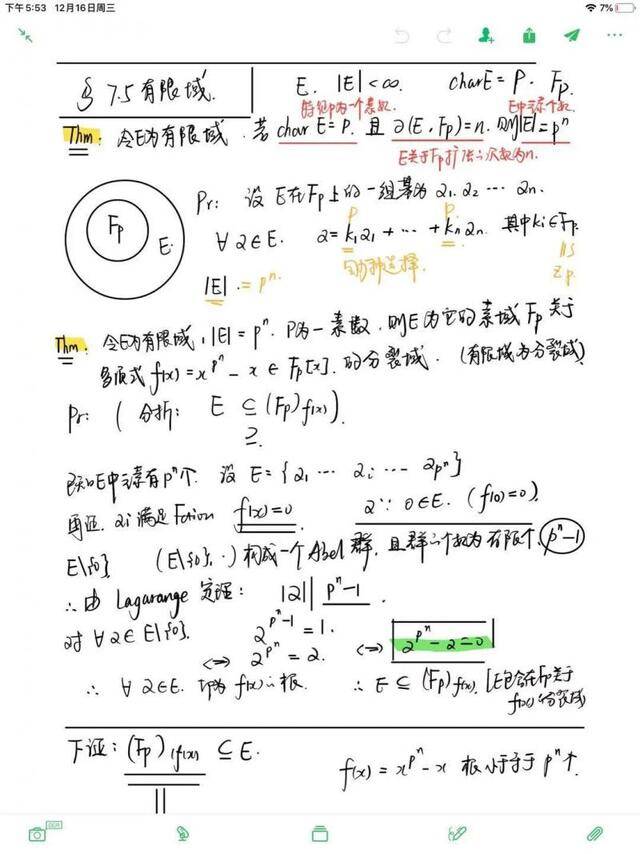 下午5:53 12月16日周三 7%
§ 7.5 有限域. E. |E|<∞. charE = P. Fp.
特征P为一个素数. E中元素个数.
Thm: 令E为有限域. 若 char E = P. 且 ∂(E, Fp)=n. 则|E|=pⁿ
E关于Fp扩张次数为n.
Fp E.
Pr: 设 E在Fp上的一组基为 α₁. α₂ … αn.
p p
∀ α∈E. α=k₁α₁ + … + knαn. 其中ki∈Fp.
|E| = pⁿ. 选择. Zp
Thm: 令E为有限域, |E| = pⁿ. P为一素数, 则E为它的素域Fp关于
多项式 f(x) = x^pⁿ - x ∈ Fp[x]. 的分裂域. (有限域为分裂域)
Pr: ( 分析: E ⊆ (Fp)f(x)).
⊇
已知E中元素有pⁿ个. 设 E = {α₁ … αi … αpⁿ}
再证. αi 满足 f(x)=0 0∈E. (f(0)=0).
E\{0} (E\{0}, ·) 构成一个Abel群, 且群元个数为有限个 pⁿ-1
∴ 由 Lagarange 定理: |α| | pⁿ-1.
对 ∀ α∈E\{0}. α^pⁿ-1 = 1.
⟺ α^pⁿ = α. ⟺ α^pⁿ - α = 0
∴ ∀ α∈E. 均为 f(x) 根. ∴ E ⊆ (Fp)f(x). [E包含在Fp关于
f(x)分裂域
下证: (Fp)f(x) ⊆ E. f(x) = x^pⁿ - x 根小于等于 pⁿ个.
OCR